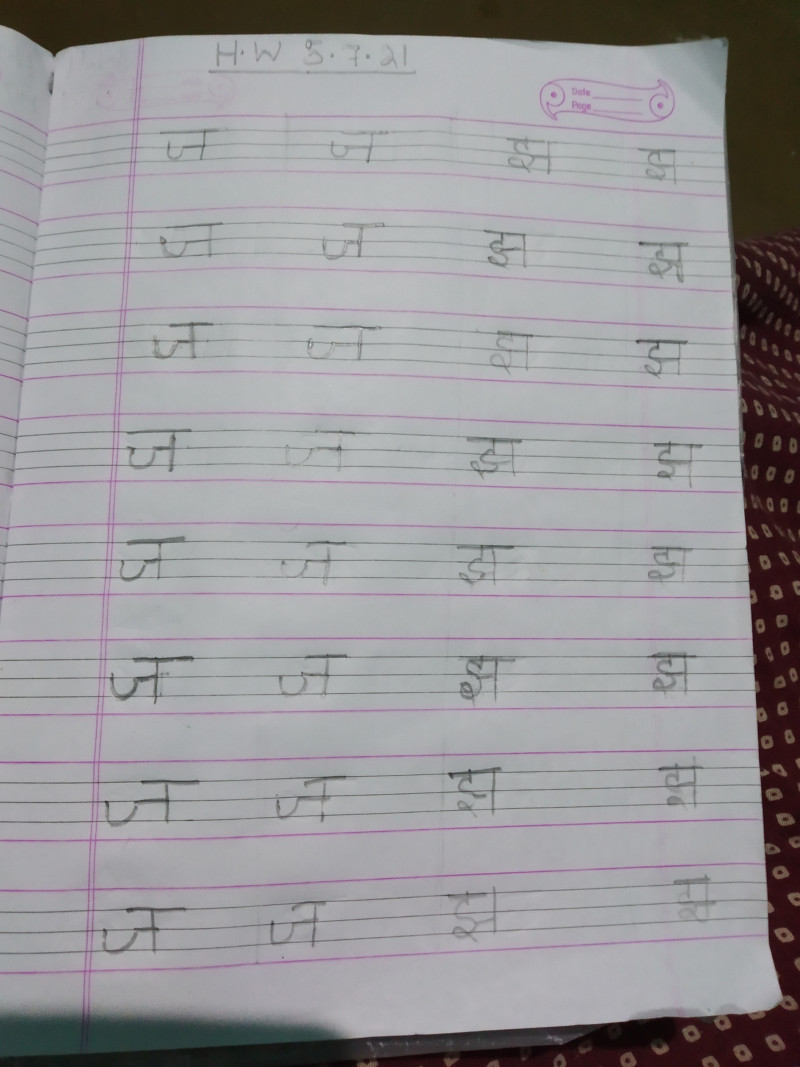 H.W 5.7.21
Date
Page
ज ज झ झ
ज ज झ झ
ज ज झ झ
ज ज झ झ
ज ज झ झ
ज ज झ झ
ज ज झ झ
ज ज झ झ